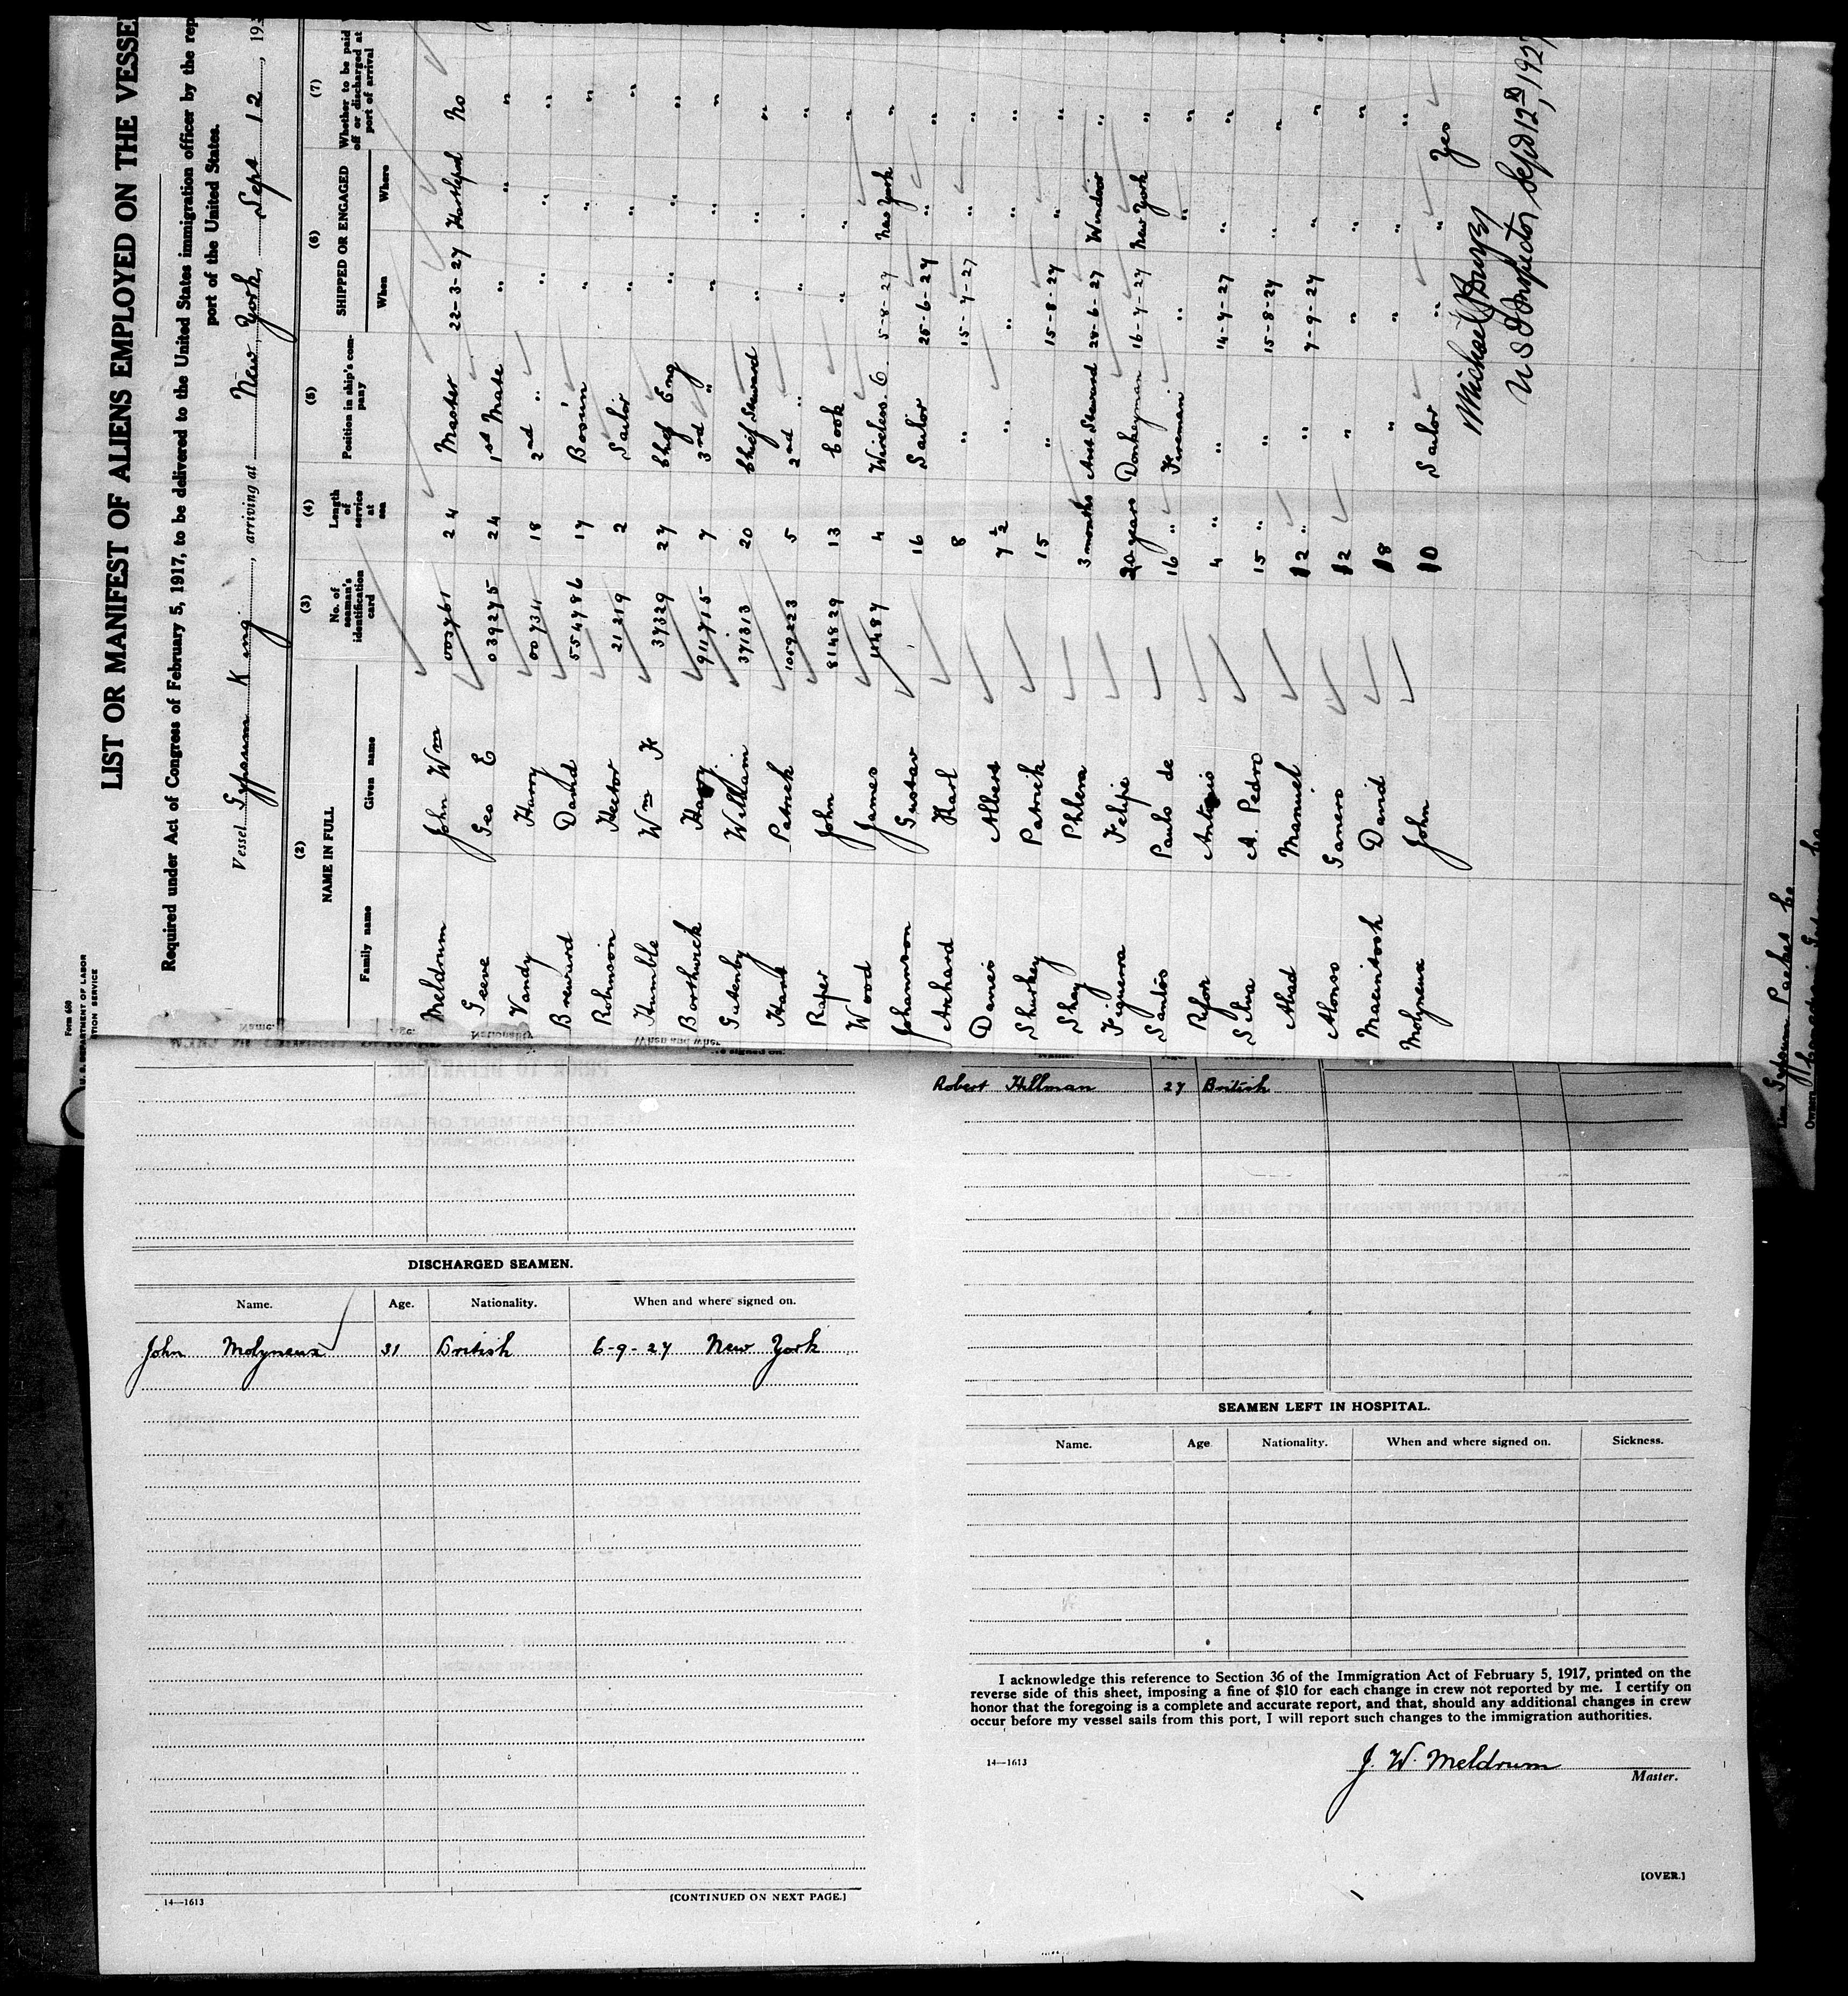 Form 680
U. S. DEPARTMENT OF LABOR
TION SERVICE
LIST OR MANIFEST OF ALIENS EMPLOYED ON THE VESSEL
Required under Act of Congress of February 5, 1917, to be delivered to the United States immigration officer by the rep
port of the United States.
Vessel Gypsum King, arriving at New York, Sept 12, 193
(2) (3) (4) (5) (6) (7)
NAME IN FULL No. of seaman's identification card Length of service at sea Position in ship's company SHIPPED OR ENGAGED Whether to be paid off or discharged at port of arrival
Family name Given name When Where
Meldrum John Wm 003761 24 Master 22-3-27 Hartlepool No
Geeve Geo E 039275 24 1st Mate " " "
Vandy Harry 00734 18 2nd " " " "
Breward David 554786 17 Bosun " " "
Robinson Hector 21219 2 Sailor " " "
Humble Wm F 37329 27 Chief Eng " " "
Borthwick Harry 911715 7 3rd " " " "
Gutenby William 371313 20 Chief Steward " " "
Patrick 1059223 5 2nd " " " "
Raper John 814829 13 Cook " " "
Wood James 4 Wireless O. 5-8-27 New York "
Johannson Gustav 16 Sailor 25-6-27 " "
Archard Karl 8 " 15-7-27 " "
Davies Albert 7½ " " " "
Sharkey Patrick 15 " 15-8-27 " "
Shay Phlem 3 months Asst Steward 28-6-27 Windsor "
Figuerra Felipe 20 years Donkeyman 16-7-27 New York "
Santos Paulo de 16 " Fireman " " "
Antonio 4 " " 14-7-27 " "
Silva A. Pedro 15 " " 15-8-27 " "
Abad Manuel 12 " " 7-9-27 " "
Alonso Ganero 12 " " " "
Macintosh David 18 " " " "
Molyneux John 10 Sailor " " Yes
Michael J Burgs
U S I Inspector Sept 12th, 1927
Line Gypsum Packet Co
Owners
Name. Age. Nationality. When and where signed on.
DISCHARGED SEAMEN.
Name. Age. Nationality. When and where signed on.
John Molyneux 31 British 6-9-27 New York
14—1613
[CONTINUED ON NEXT PAGE.]
Robert Hillman 27 British
SEAMEN LEFT IN HOSPITAL.
Name. Age Nationality. When and where signed on. Sickness.
I acknowledge this reference to Section 36 of the Immigration Act of February 5, 1917, printed on the
reverse side of this sheet, imposing a fine of $10 for each change in crew not reported by me. I certify on
honor that the foregoing is a complete and accurate report, and that, should any additional changes in crew
occur before my vessel sails from this port, I will report such changes to the immigration authorities.
14—1613
J. W. Meldrum
Master.
[OVER.]